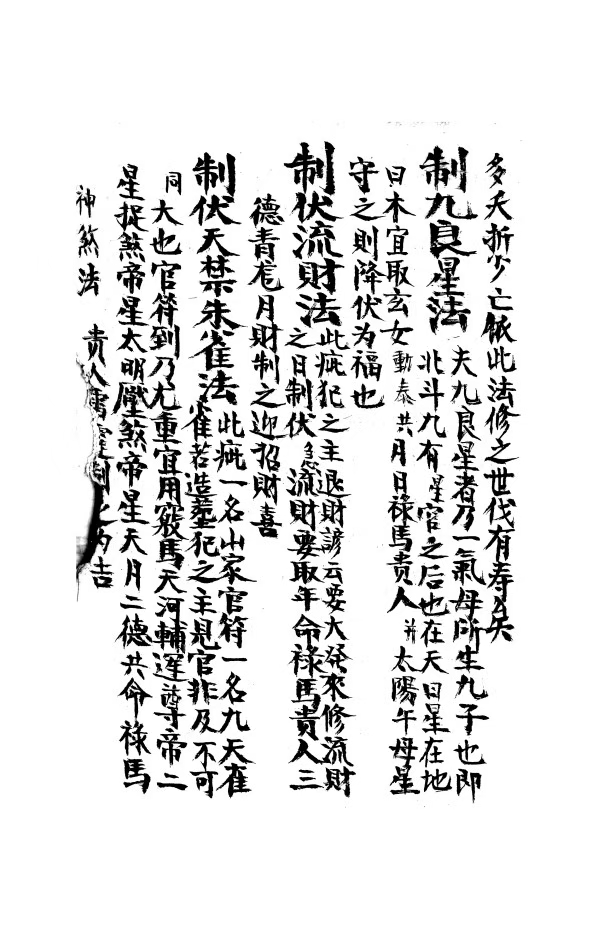 多夭折少亡依此法修之世代有寿矣
制九良星法 夫九良星者乃一氣母所生九子也即
北斗九有星官之后也在天曰星在地
曰木宜取玄女動泰共月日祿馬貴人并太陽午母星
守之則降伏为福也
制伏流財法 此疵犯之主退財諺云要大發來修流財
之日制伏急流財要取年命祿馬貴人三
德青龙月財制之迎招財喜
制伏天禁朱雀法 此疵一名山家官符一名九天雀
雀若造塟犯之主見官非及不可
同大也官符到乃尤重宜用竅馬天河輔運尊帝二
星捉煞帝星太明壓煞帝星天月二德共命祿馬
貴人制之为吉
神煞法